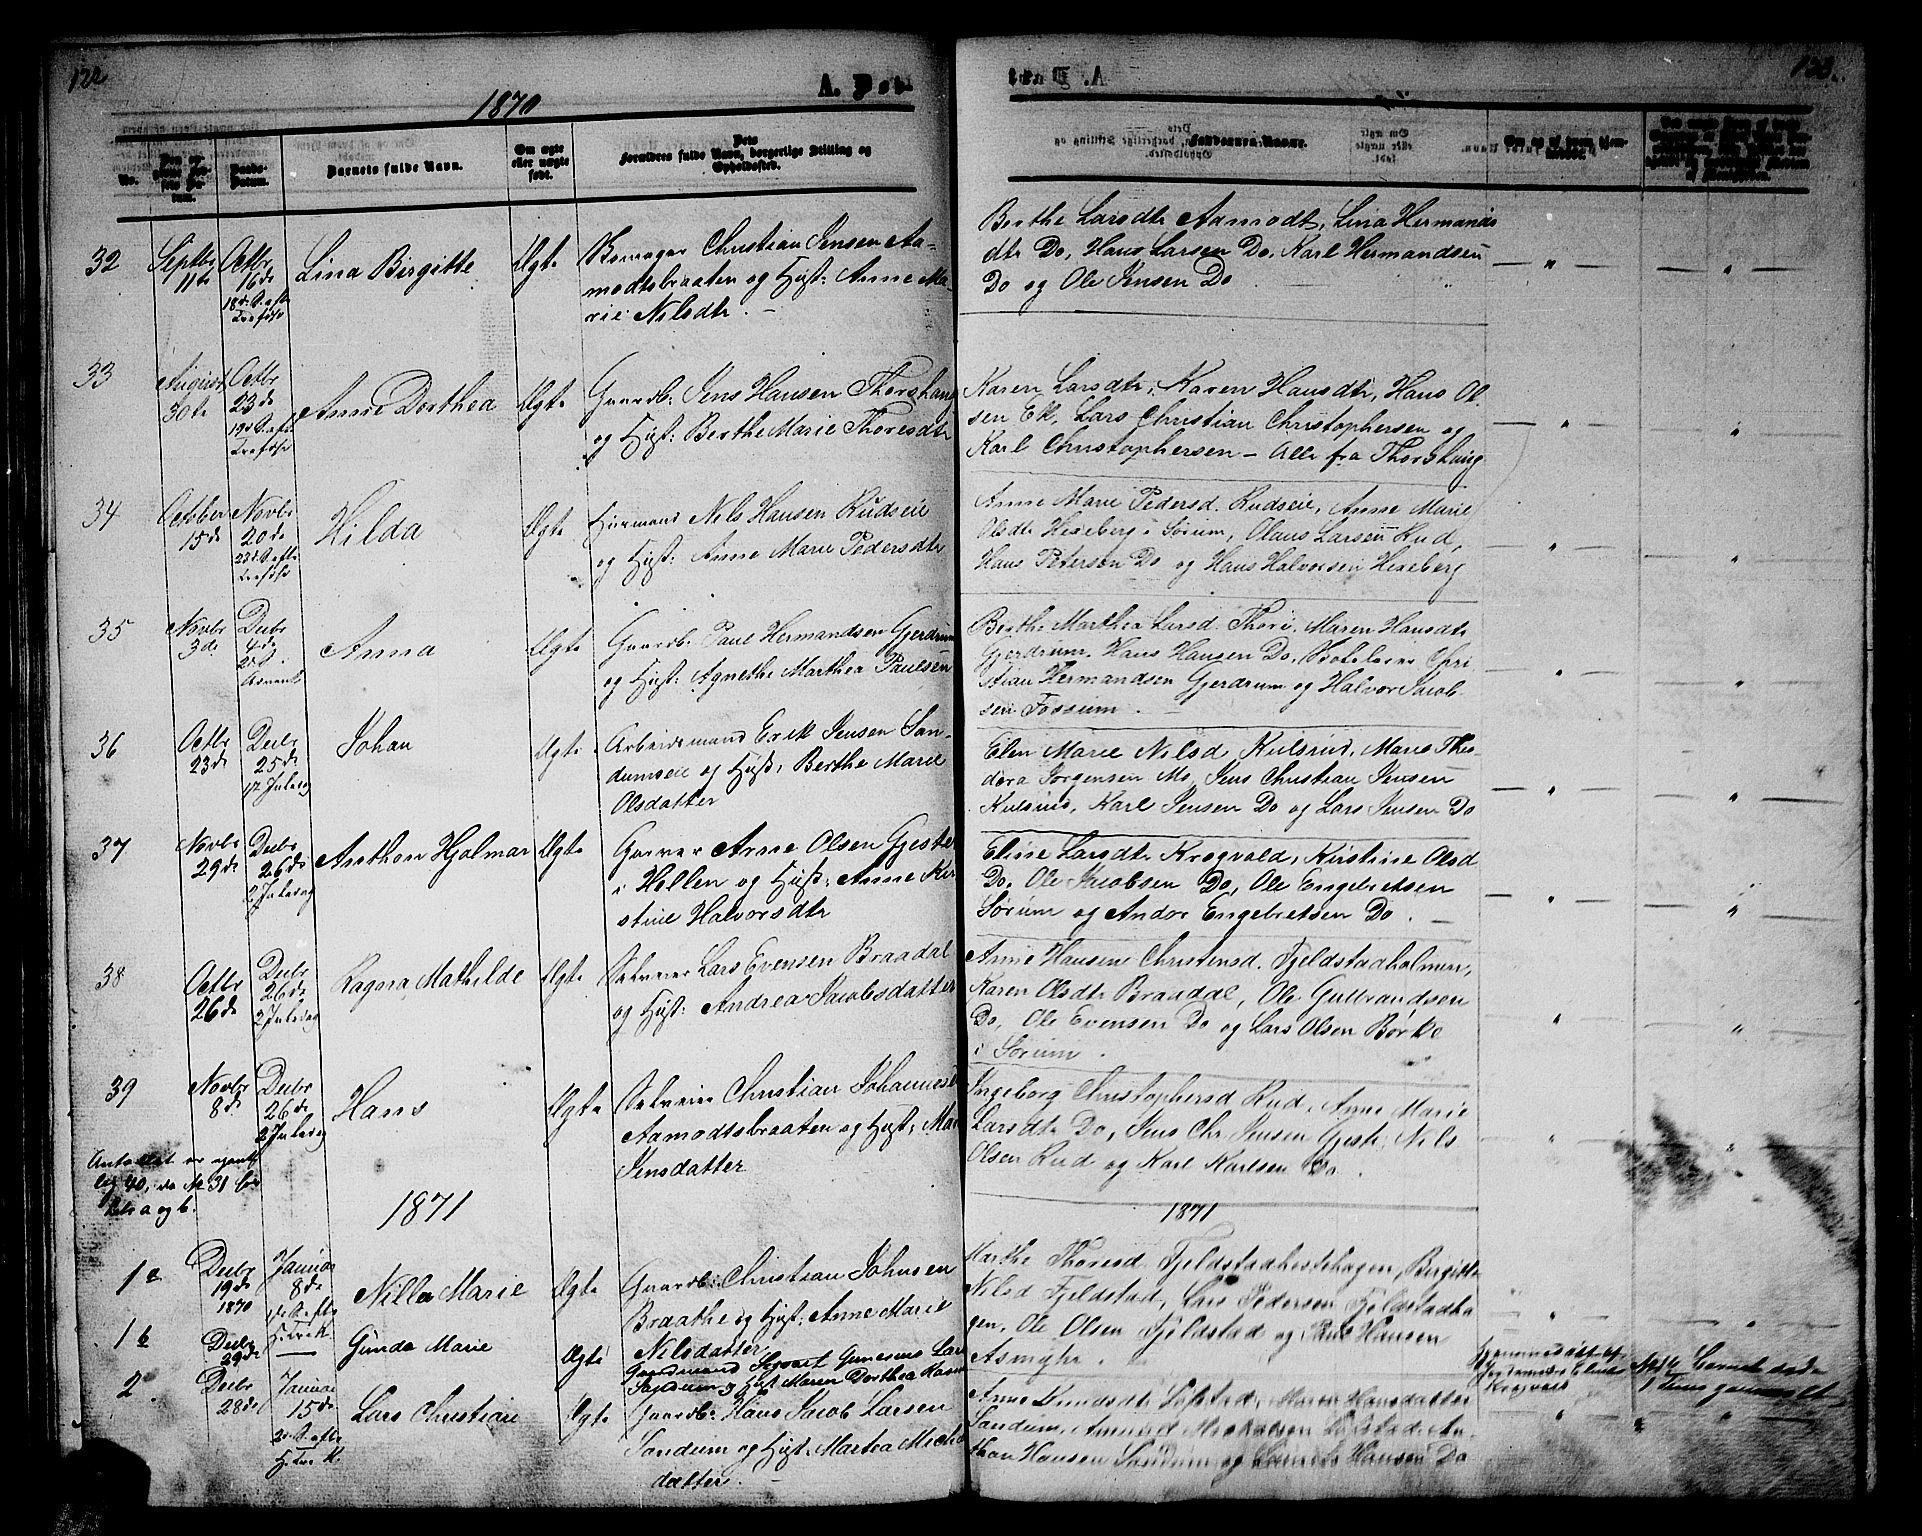 122
1870
A. Døb
No.
Barnets fulde Navn.
Om ægte
eller uægte
født.
Dets
Forældres fulde Navn, borgerlige Stilling og
Opholdssted.
32
Septbr
11te
Octbr
16de
18de S. eftr
Trefoldh
Lina Birgitte
Ægte
Christian Jensen Aa-
modtsbraaten og Hust: Anne Ma-
rie Nilsdtr. —
33
August
30te
Octbr
23de
19de S. eftr
Trefoldh
Anne Dorthea
Ægte
Gaardb: Jens Hansen Thorshaug
og Hust: Berthe Marie Thoresdtr
34
October
15de
Novbr
20de
23de S. eftr
Trefoldh
Hilda
Ægte
Huusmand Nils Hansen Rudseie
og Hust: Anne Marie Pedersdtr
35
Novbr
3de
Decbr
4de
2den S. i
Advent
Anna
Ægte
Gaardb: Paul Hermandsen Gjerdrum
og Hust: Agnethe Marthea Paulsen
36
Octbr
23de
Decbr
25de
1ste Juledag
Johan
Ægte
Arbeidsmand Erik Jensen San-
dumseie og Hust: Berthe Marie
Olsdatter
37
Novbr
29de
Decbr
26de
2 Juledag
Anthon Hjalmar
Ægte
Garver Arne Olsen Gjeste
i Hellen og Hust: Anne Kir
stine Halvorsdtr
38
Octbr
26de
Decbr
26de
2 Juledag
Ragna Mathilde
Ægte
Selveier Lars Evensen Braadal
og Hust: Andrea Jacobsdatter
39
Novbr
8de
Decbr
26de
2 Juledag
Hans
Ægte
Selveier Christian Johannesen
Aamodtsbraaten og Hust: Mari
Jensdatter
Antallet er egent
lig 40, da No 31 be
a og b.
1871
1a
Decbr
19de
1870
Januar
8de
1ste S. eftr
H. Tre K.
Nilla Marie
Ægte
Gaardb: Christian Johnsen
Braathe og Hust: Anne Marie
Nilsdatter
1b
Decbr
29de
Gunda Marie
Ægte
Gaardmand Gunerius Lars
Sandum og Hust Maren Dorthea
2
Decbr
28de
Januar
15de
2den S. eftr
H. Tre K.
Lars Christian
Ægte
Gaardb: Hans Jacob Larsen
Sandum og Hust: Martea Michels
datter. —
A. Døbt
123
Faddernes Navne.
Berthe Larsdtr Aamodt, Lina Hermands
dtr Do, Hans Larsen Do, Karl Hermandsen
Do og Ole Jensen Do
Karen Larsdtr, Karen Hansdtr, Hans Ol-
sen Ek, Lars Christian Christophersen og
Karl Christophersen — Alle fra Thorshaug
Anne Marie Pedersd. Rudseie, Anne Marie
Olsdtr Hexeberg i Sørum, Olaus Larsen Rud,
Hans Petersen Do og Hans Halvorsen Hexeberg
Berthe Marthea Larsd Thori, Maren Hansdtr
Gjerdrum, Hans Hansen Do, Chri
stian Hermandsen Gjerdrum og Halvor Jacob
sen Fossum. —
Elen Marie Nilsd Kulsrud, Maris Theo
dora Jørgensen Mo, Jens Christian Jensen
Kulsrud, Karl Jensen Do og Lars Jensen Do
Eline Larsdtr Krogvold, Kirstine Olsd
Do, Ole Jacobsen Do, Ole Engebretsen
Sørum og Andrs Engebretsen Do. —
Anne Hansine Christensd. Fjeldstadholmen,
Karen Olsdtr Braadal, Ole Gulbrandsen
Do, Ole Evensen Do og Lars Olsen Børke
i Sørum.
Ingeborg Christophersd Rud, Anne Marie
Larsdtr Do, Jens Chr. Jensen Gjeste, Nils
Olsen Rud og Karl Karlsen Do.
1871
Marthe Thoresd Fjeldstadhestehagen, Birgitte
Nilsd Fjeldstad, Lars Pedersen Fjeldstadha
gen, Ole Olsen Fjeldstad og Paul Hansen
Asmyhr.
Hjemmedøbt af
Jordmoder Eline
Krogvold
Anne Knudsdtr Lofstad, Maren Hansdatter
Sandum, Amund Michelsen Lofstad, An
thon Hansen Sandum og Laurits Hansen Do